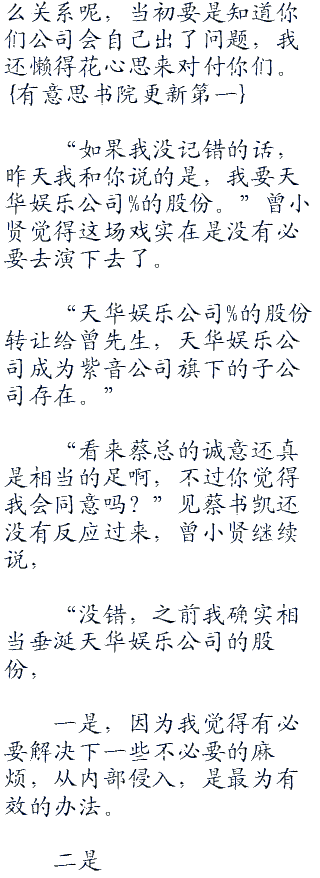 么关系呢，当初要是知道你
们公司会自己出了问题，我
还懒得花心思来对付你们。
{有意思书院更新第一}
“如果我没记错的话，
昨天我和你说的是，我要天
华娱乐公司%的股份。”曾小
贤觉得这场戏实在是没有必
要去演下去了。
“天华娱乐公司%的股份
转让给曾先生，天华娱乐公
司成为紫音公司旗下的子公
司存在。”
“看来蔡总的诚意还真
是相当的足啊，不过你觉得
我会同意吗？”见蔡书凯还
没有反应过来，曾小贤继续
说，
“没错，之前我确实相
当垂涎天华娱乐公司的股
份，
一是，因为我觉得有必
要解决下一些不必要的麻
烦，从内部侵入，是最为有
效的办法。
二是